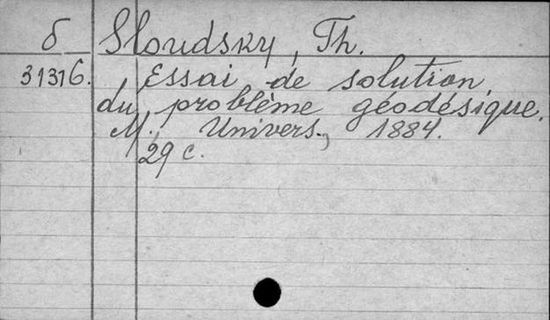 б Sloudsky, Th.
31316. Essai de solution
du problème géodésique.
M., Univers., 1884.
29 c.